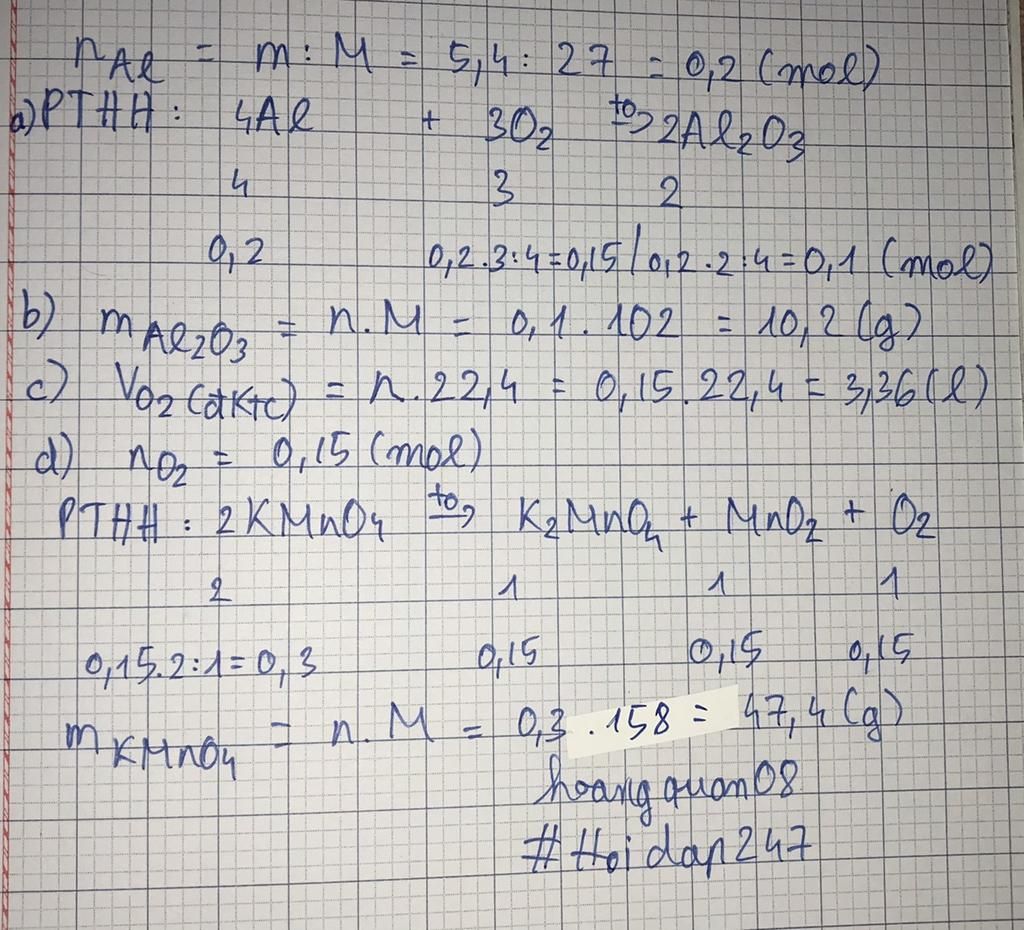 nAl = m : M = 5,4 : 27 = 0,2 (mol)
a) PTHH : 4Al + 3O2 to→ 2Al2O3
4 3 2
0,2 0,2.3:4=0,15 / 0,2.2:4=0,1 (mol)
b) mAl2O3 = n.M = 0,1.102 = 10,2 (g)
c) VO2 (đktc) = n.22,4 = 0,15.22,4 = 3,36 (l)
d) nO2 = 0,15 (mol)
PTHH : 2KMnO4 to→ K2MnO4 + MnO2 + O2
2 1 1 1
0,15.2:1=0,3 0,15 0,15 0,15
mKMnO4 = n.M = 0,3.158 = 47,4 (g)
hoangquan08
#Hoidap247